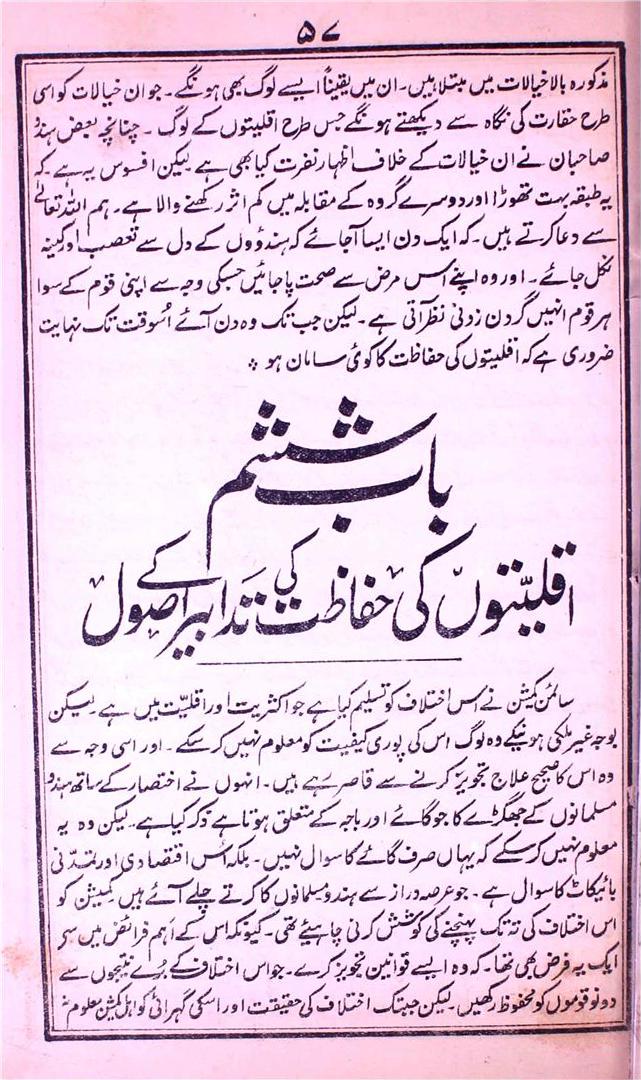 ۵۷
مذکورہ بالا خیالات میں مبتلا ہیں۔ ان میں یقیناً ایسے لوگ بھی ہونگے۔ جو ان خیالات کو اسی
طرح حقارت کی نگاہ سے دیکھتے ہونگے جس طرح اقلیتوں کے لوگ۔ چنانچہ بعض ہندو
صاحبان نے ان خیالات کے خلاف اظہار نفرت کیا بھی ہے لیکن افسوس یہ ہے۔ کہ
یہ طبقہ بہت تھوڑا اور دوسرے گروہ کے مقابلہ میں کم اثر رکھنے والا ہے۔ ہم اللہ تعالےٰ
سے دعا کرتے ہیں۔ کہ ایک دن ایسا آجائے کہ ہندوؤں کے دل سے تعصب اور کینہ
نکل جائے۔ اور وہ اپنے اس مرض سے صحت پا جائیں جسکی وجہ سے اپنی قوم کے سوا
ہر قوم انہیں گردن زدنی نظر آتی ہے۔ لیکن جب تک وہ دن آئے اُسوقت تک نہایت
ضروری ہے کہ اقلیتوں کی حفاظت کا کوئی سامان ہو ؞
باب ششم
اقلیّتوں کی حفاظت کی تدابیر کے اصول
سائمن کمیشن نے اس اختلاف کو تسلیم کیا ہے جو اکثریت اور اقلیّت میں ہے۔ لیکن
بوجہ غیر ملکی ہونیکے وہ لوگ اس کی پوری کیفیت کو معلوم نہیں کر سکے۔ اور اسی وجہ سے
وہ اس کا صحیح علاج تجویز کرنے سے قاصر رہے ہیں۔ انہوں نے اختصار کے ساتھ ہندو
مسلمانوں کے جھگڑے کا جو گائے اور باجہ کے متعلق ہوتا ہے ذکر کیا ہے۔ لیکن وہ یہ
معلوم نہیں کر سکے کہ یہاں صرف گائے کا سوال نہیں۔ بلکہ اُس اقتصادی اور تمدّنی
بائیکاٹ کا سوال ہے۔ جو عرصہ دراز سے ہندو مسلمانوں کا کرتے چلے آئے ہیں کمیشن کو
اس اختلاف کی تہ تک پہنچنے کی کوشش کرنی چاہیئے تھی۔ کیونکہ اس کے اہم فرائض میں سے
ایک یہ فرض بھی تھا۔ کہ وہ ایسے قوانین تجویز کرے۔ جو اس اختلاف کے بُرے نتیجوں سے
دونو قوموں کو محفوظ رکھیں۔ لیکن جبتک اختلاف کی حقیقت اور اسکی گہرائی کو اہل کمیشن معلوم نہ